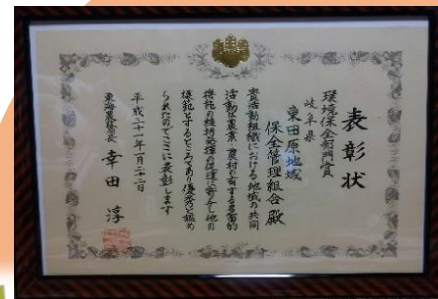 表彰状
環境保全部門賞
岐阜県
東田原地域
保全管理組合殿
貴活動組織における地域の共同
活動は農業・農村の有する多面的
機能の維持発揮の促進に寄与し他の
模範とするところであり優秀と認め
られたのでここに表彰します
平成二十一年一月二十一日
東海農政局長 幸田淳